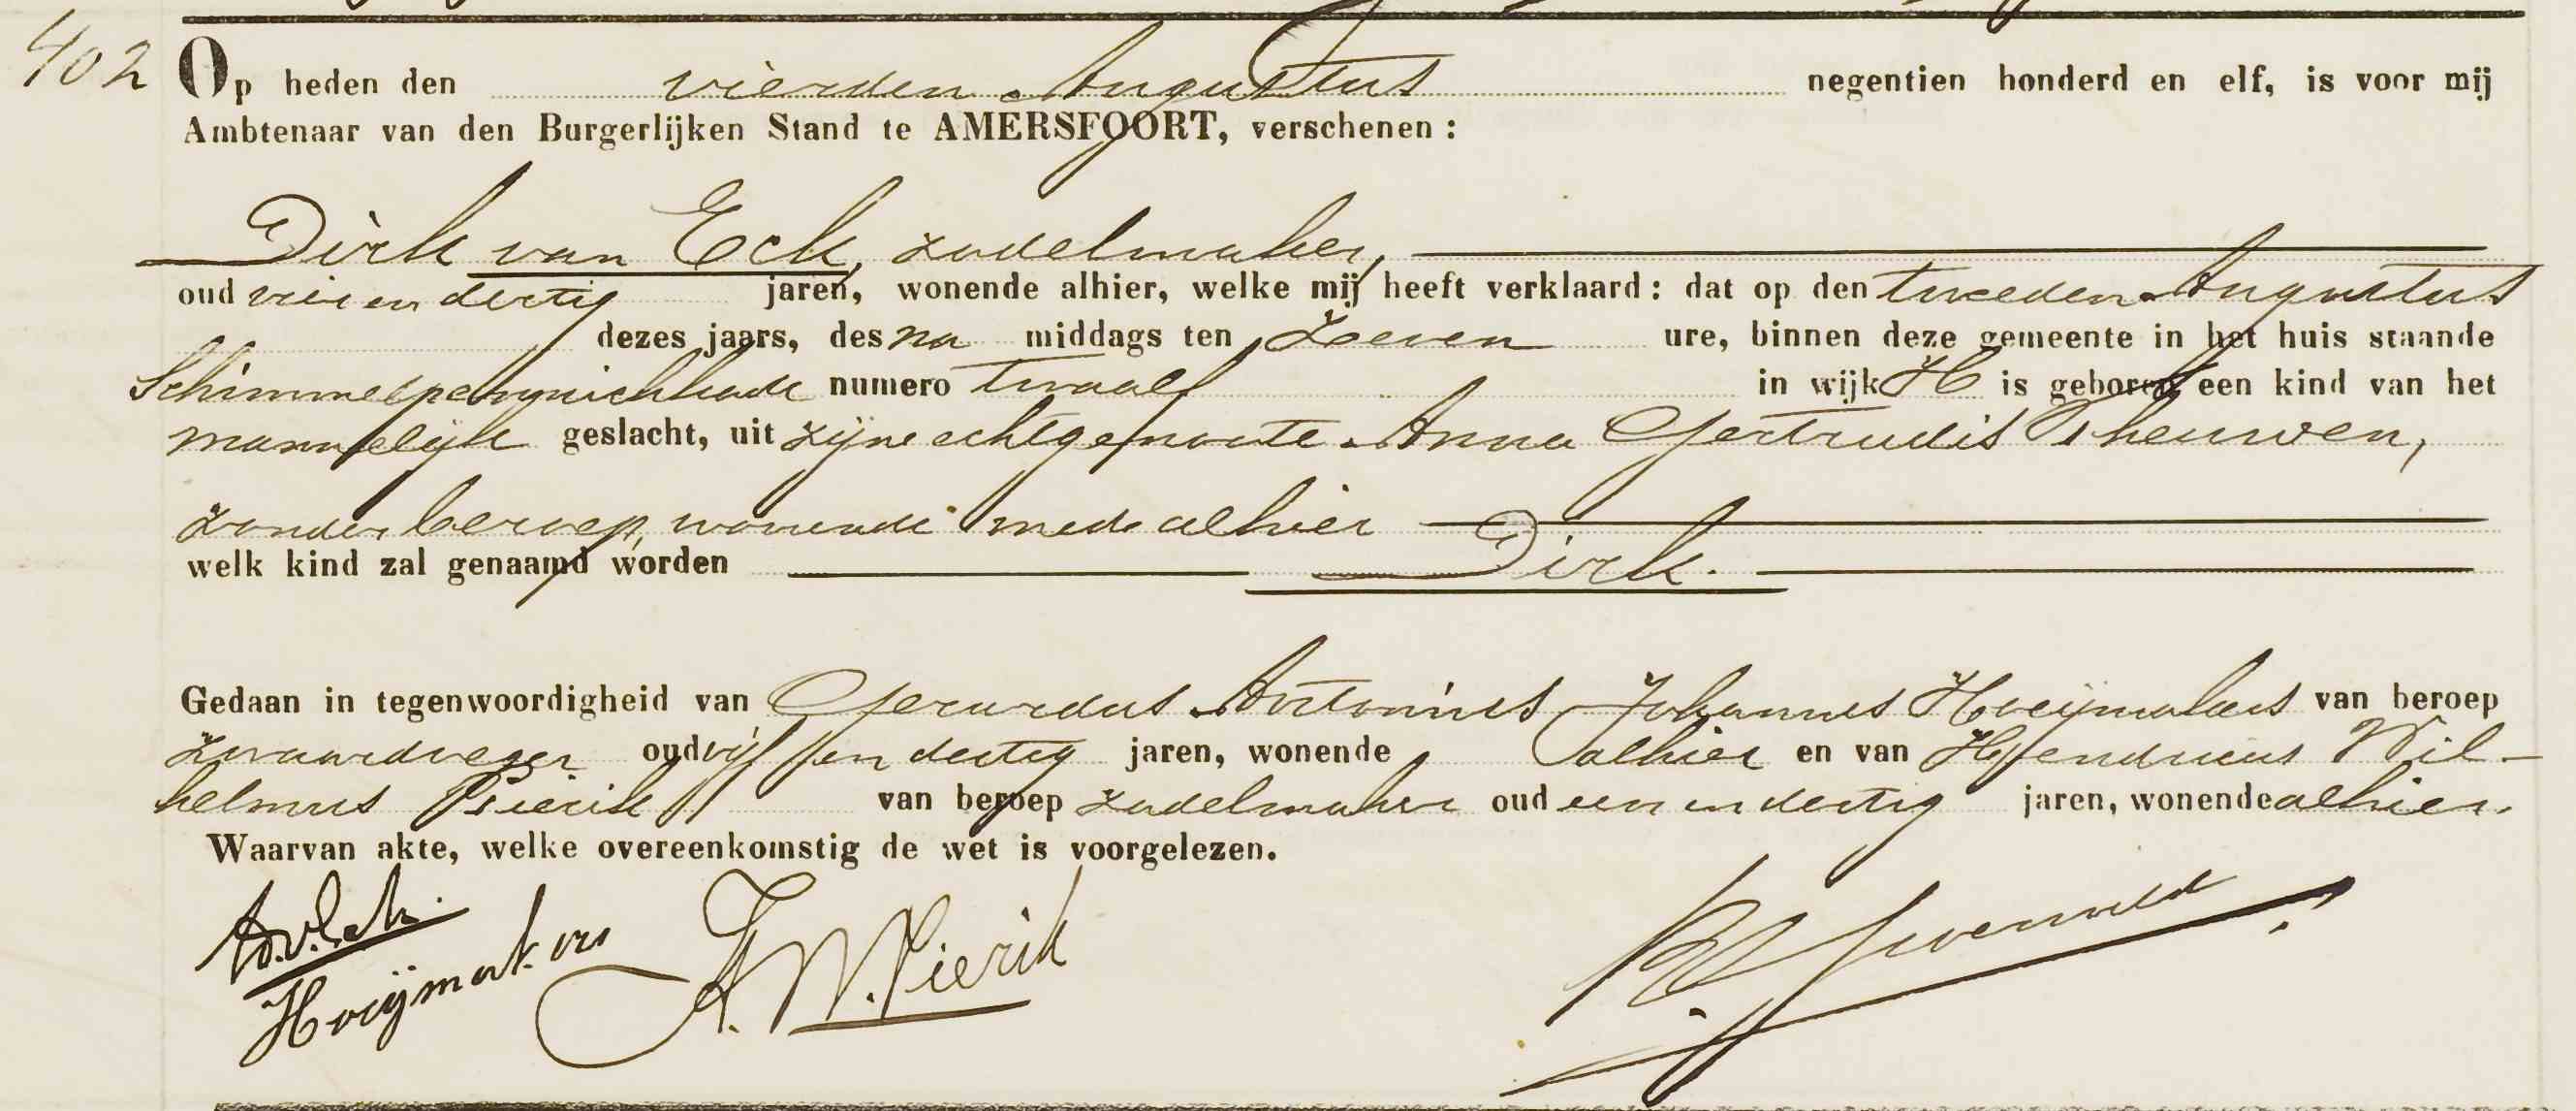 402
Op heden den vierden Augustus negentien honderd en elf, is voor mij
Ambtenaar van den Burgerlijken Stand te AMERSFOORT, verschenen :
Dirk van Eck, zadelmaker,
oud vier en dertig jaren, wonende alhier, welke mij heeft verklaard : dat op den tweeden Augustus
dezes jaars, des na middags ten zeven ure, binnen deze gemeente in het huis staande
Schimmelpenninckkade numero twaalf in wijk H is geboren een kind van het
mannelijk geslacht, uit zijne echtgenoote Anna Gertrudis Theuwen,
zonder beroep, wonende mede alhier
welk kind zal genaamd worden Dirk.
Gedaan in tegenwoordigheid van Gerardus Antonius Johannes Hoeijmakers van beroep
zwaardveger oud vijf en dertig jaren, wonende alhier en van Hendricus Wil-
helmus Pierik van beroep zadelmaker oud een en dertig jaren, wonende alhier.
Waarvan akte, welke overeenkomstig de wet is voorgelezen.
D.v.Eck.
Hoeijmakers
H.W.Pierik